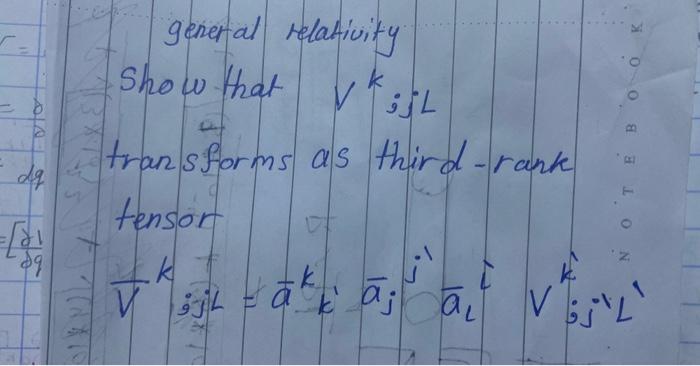 general relativity
Show that V^k_{;jL}
transforms as third-rank
tensor
V̄^k_{;jL} = ā^k_{k'} ā_j^{j'} ā_L^{L'} V^{k'}_{;j'L'}
NOTEBOOK